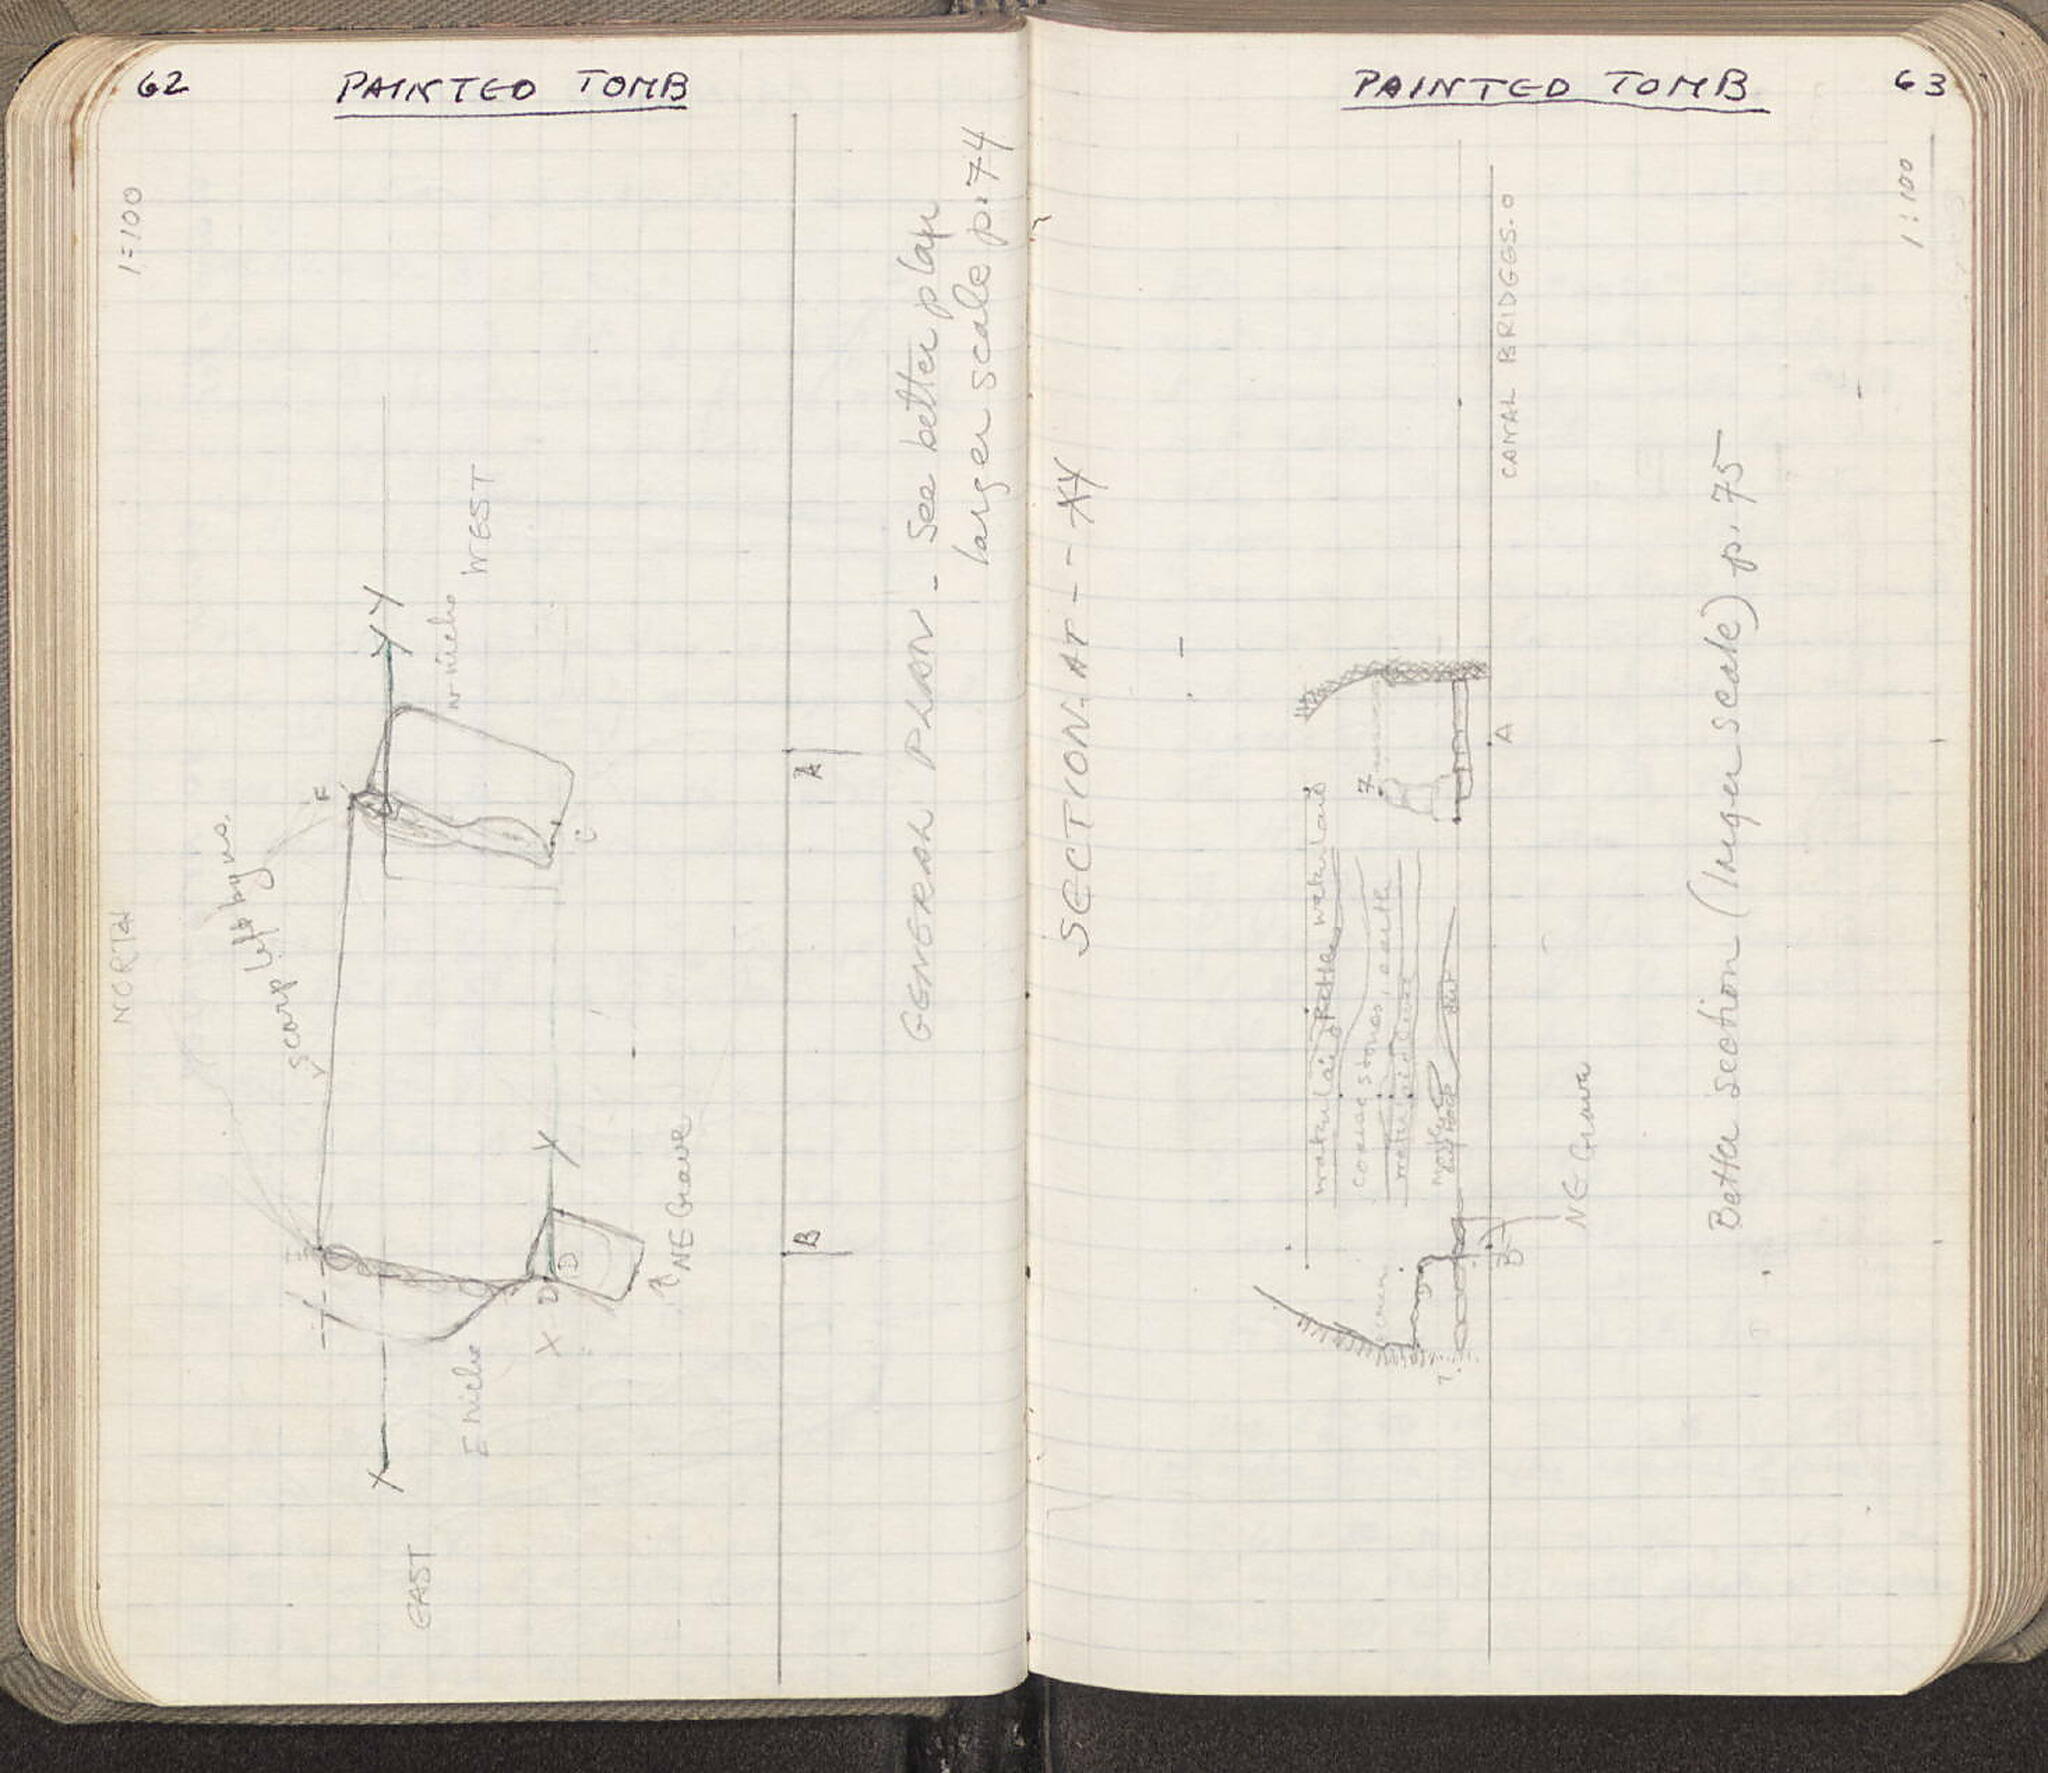 62
PAINTED TOMB
1=100
NORTH
scarp left by us.
F
Y Y
W niche
WEST
C
X
EAST
E niche
X
D
D
Y
NE Grave
A
B
GENERAL PLAN - See better plan
larger scale p. 74
PAINTED TOMB
63
1:100
SECTION. AT - - XY
waterlaid
waterlaid
coarse stones, earth
waterlaid
7
CANAL BRIDGGS. 0
A
B
NE Grave
Better section (larger scale) p. 75